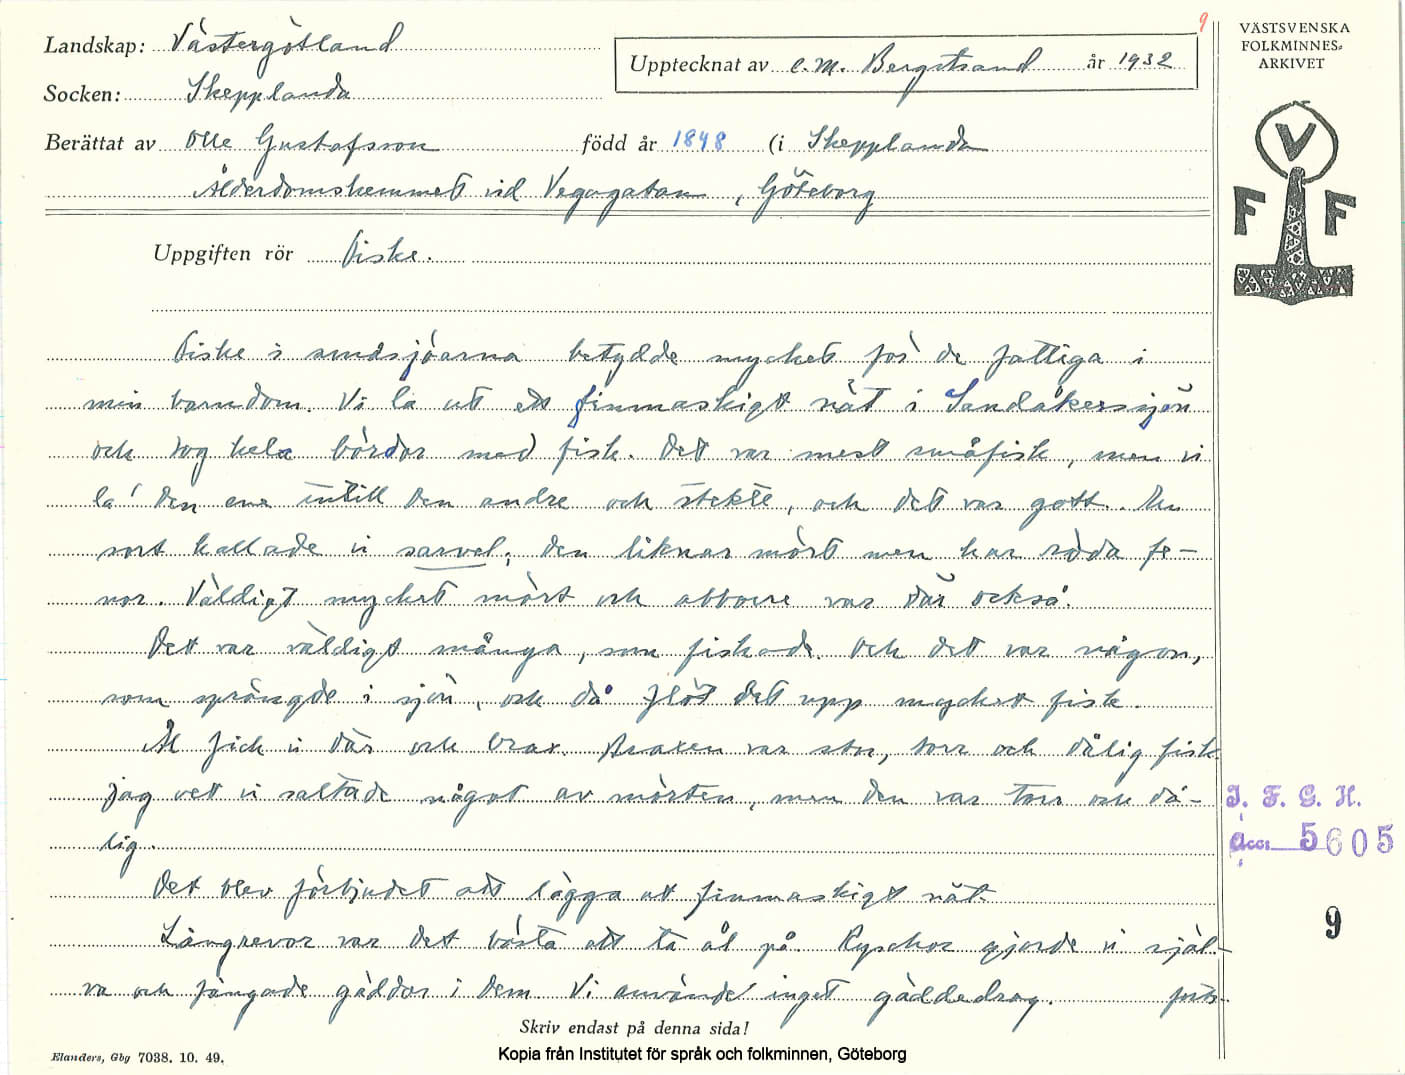 9
Landskap: Västergötland
Upptecknat av C. M. Bergstrand år 1932
Socken: Skepplanda
Berättat av Olle Gustafsson född år 1848 (i Skepplanda
Ålderdomshemmet vid Vegagatan, Göteborg
VÄSTSVENSKA
FOLKMINNES-
ARKIVET
V
F F
Uppgiften rör Fiske.
Fiske i småsjöarna betydde mycket för de fattiga i
min barndom. Vi la ut ett finmaskigt nät i Sandåkerssjön
och tog hela bördor med fisk. Det var mest småfisk, men vi
la' den ene intill den andre och stekte, och det var gott. En
sort kallade vi sarvel; den liknar mört men har röda fe-
nor. Väldigt mycket mört och abborre var där också.
Det var väldigt många, som fiskade. Och det var någon,
som sprängde i sjön, och då flöt det upp mycket fisk.
Ål fick vi där och brax. Braxen var stor, torr och dålig fisk.
Jag vet vi saltade något av mörten, men den var torr och då-
lig.
Det blev förbjudet att lägga ut finmaskigt nät.
Långrevor var det bästa att ta ål på. Ryschor gjorde vi själ-
va och fångade gäddor i dem. Vi använde inget gäddedrag. forts.
I. F. G. H.
Acc: 5605
9
Skriv endast på denna sida!
Elanders, Gbg 7038. 10. 49.
Kopia från Institutet för språk och folkminnen, Göteborg